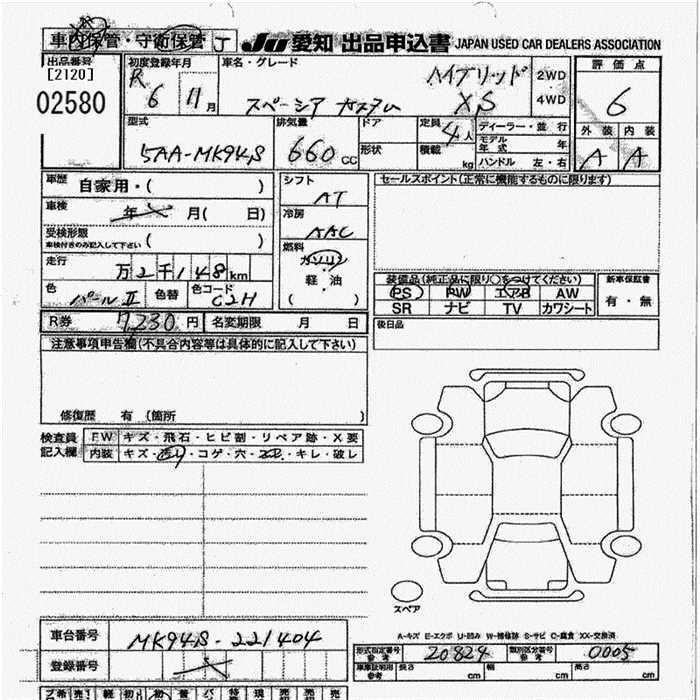 車内保管・守衛保管 J JU 愛知 出品申込書 JAPAN USED CAR DEALERS ASSOCIATION
出品番号 [2120] 02580
初度登録年月 R 6 11月
車名・グレード スペーシア カスタム ハイブリッド XS
2WD 4WD
評価点 6
外装 内装
A A
型式 5AA-MK94S
排気量 660 CC
ドア 形状
定員 4人
積載 kg
ディーラー・並行
モデル年式 年
ハンドル 左・右
車歴 自家用・( )
車検 年 月( 日)
受検形態 車検付きのみ記入して下さい ( )
走行 万2千148km
色 パールⅡ 色替 色コード C2H
シフト AT
冷房 AAC
燃料 ガソリン・軽油 ( )
R券 7,230円 名変期限 月 日
セールスポイント(正常に機能するものに限ります)
装備品(純正品に限り○をつけてください)
PS PW エアB AW
SR ナビ TV カワシート
新車保証書 有・無
後日品
注意事項申告欄(不具合内容等は具体的に記入して下さい)
修復歴 有 (箇所 )
検査員記入欄
FW キズ・飛石・ヒビ割・リペア跡・X要
内装 キズ・汚れ・コゲ・穴・スレ・キレ・破レ
スペア
A-キズ E-エクボ U-凹み W-補修跡 S-サビ C-腐食 XX-交換済
車台番号 MK94S-221404
登録番号
型式指定番号 参考 20824 類別区分番号 参考 0005
車庫証明用 参考 長さ cm 幅 cm 高さ cm